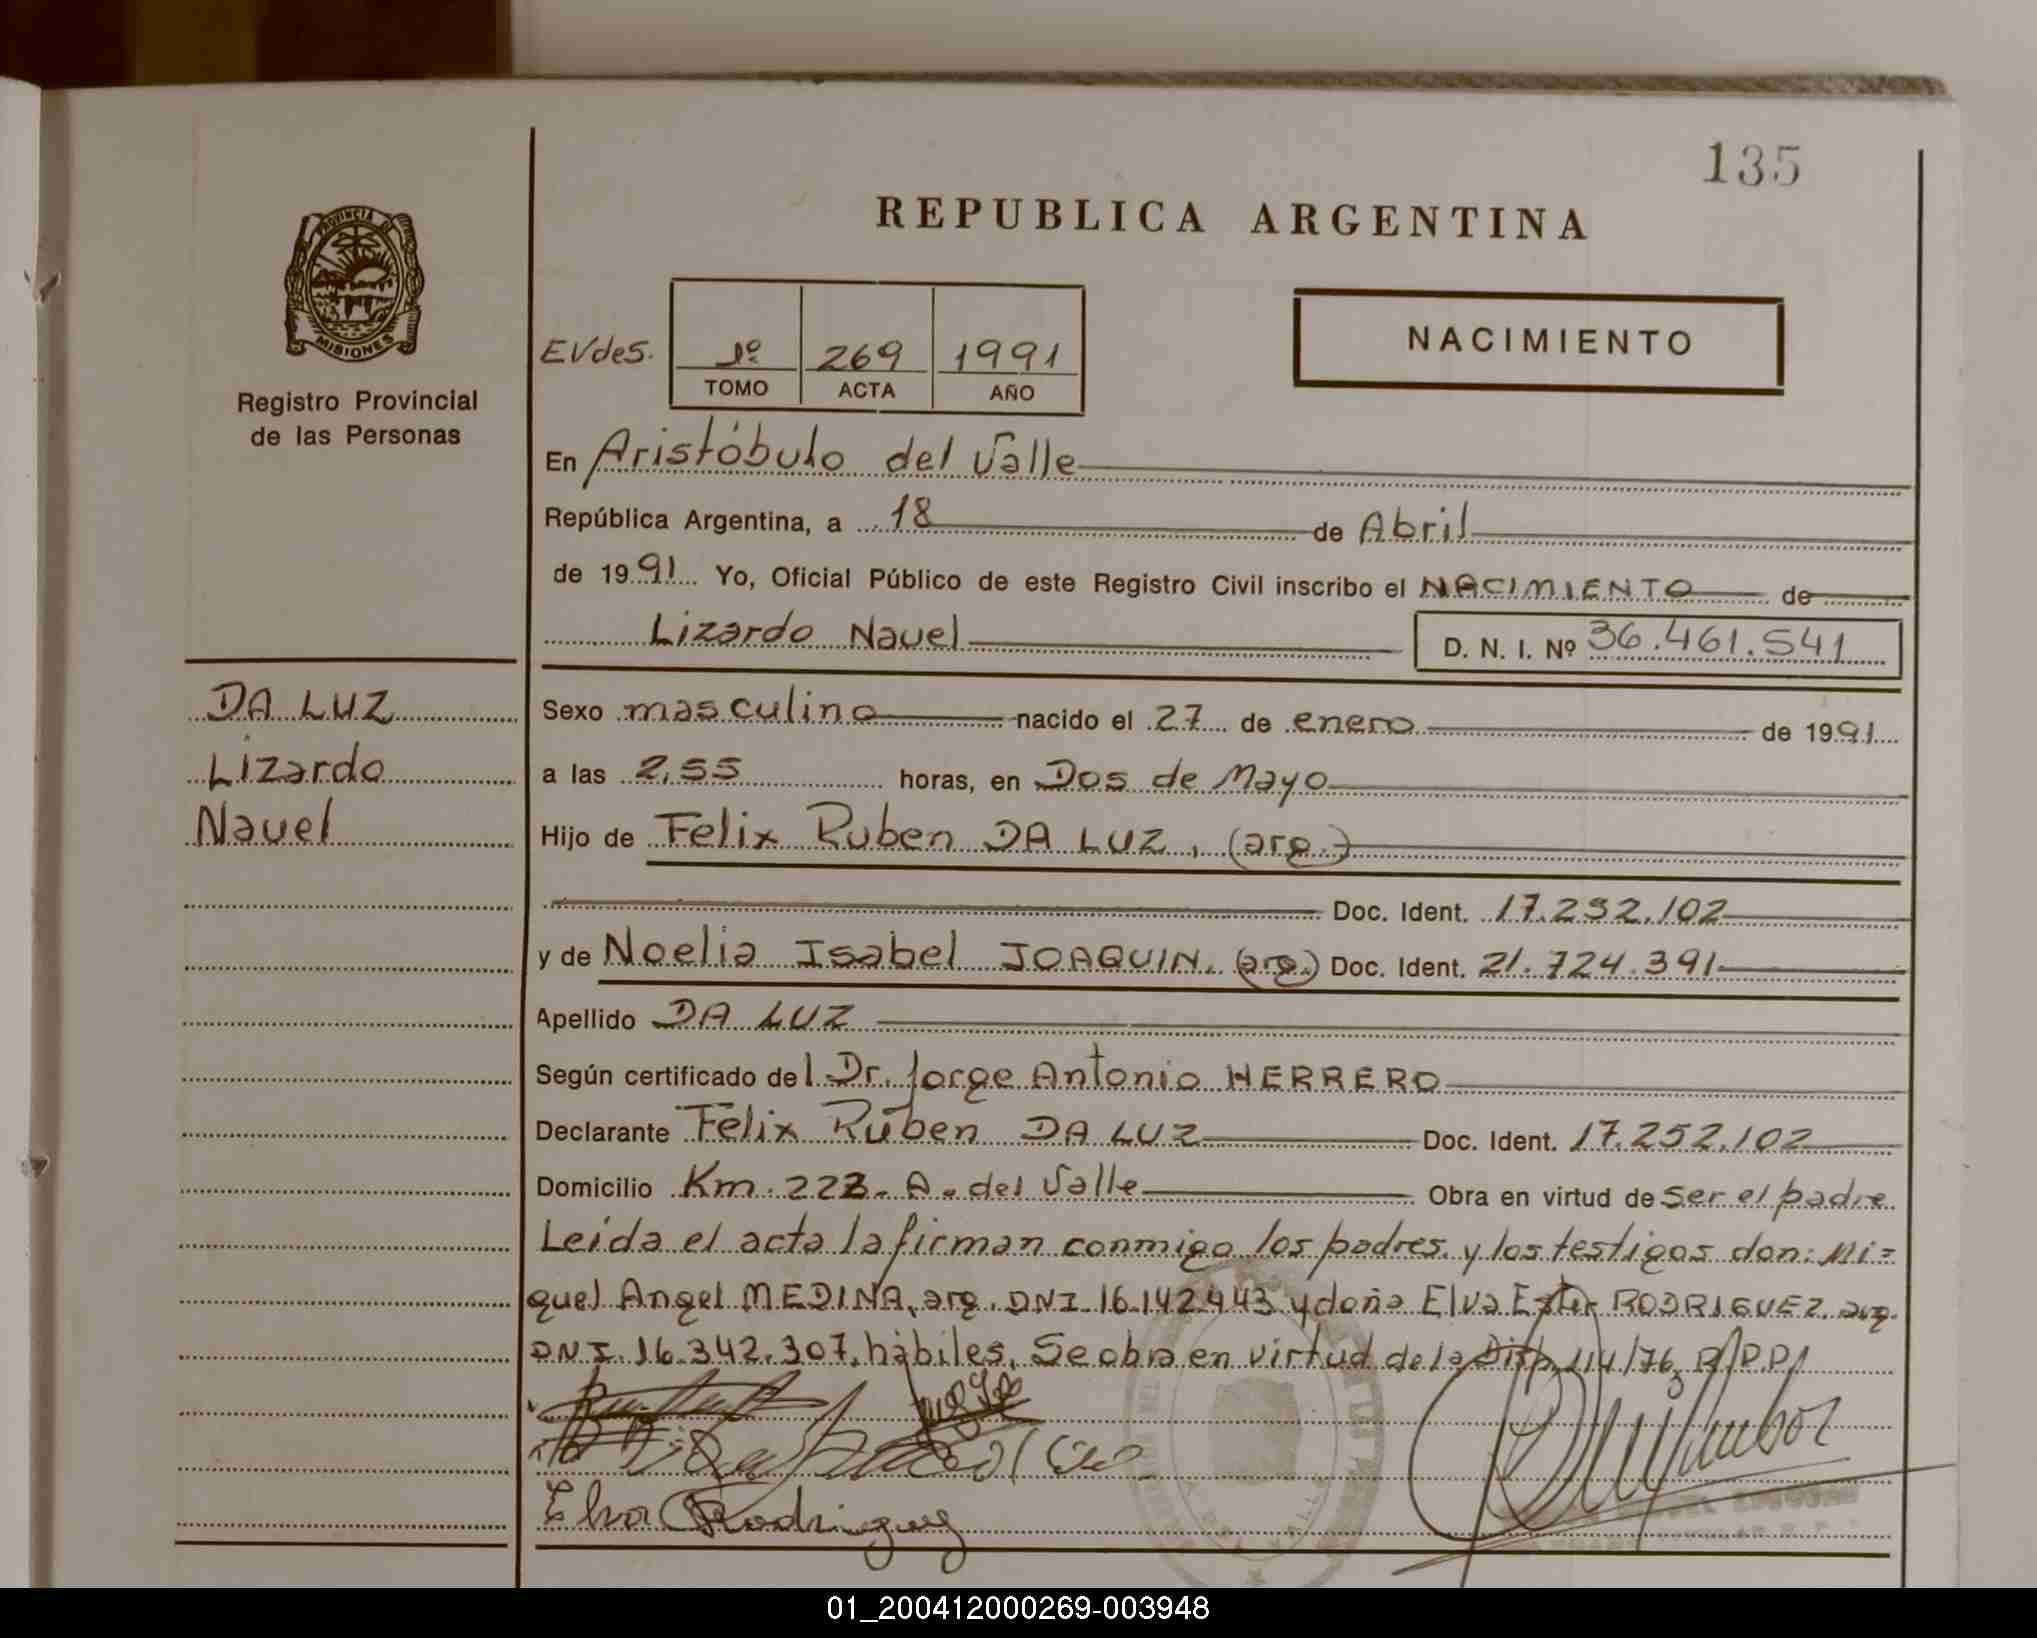 135
REPUBLICA ARGENTINA
PROVINCIA DE
MISIONES
Registro Provincial
de las Personas
EVdes.
1º 269 1991
TOMO ACTA AÑO
NACIMIENTO
En Aristóbulo del Valle
República Argentina, a 18 de Abril
de 1991 Yo, Oficial Público de este Registro Civil inscribo el NACIMIENTO de
Lizardo Nauel D. N. I. Nº 36.461.541
DA LUZ
Lizardo
Nauel
Sexo masculino nacido el 27 de enero de 1991
a las 2,55 horas, en Dos de Mayo
Hijo de Felix Ruben DA LUZ, (arg.)
Doc. Ident. 17.252.102
y de Noelia Isabel JOAQUIN. (arg.) Doc. Ident. 21.724.391
Apellido DA LUZ
Según certificado del Dr. Jorge Antonio HERRERO
Declarante Felix Ruben DA LUZ Doc. Ident. 17.252.102
Domicilio Km. 223. A. del Valle Obra en virtud de ser el padre
Leida el acta la firman conmigo los padres y los testigos don: Mi=
guel Angel MEDINA, arg. DNI 16.142.443 y doña Elva Ester RODRIGUEZ, arg.
DNI. 16.342.307, hábiles. Se obra en virtud de la Disp. 114/76, R/P.P/
Elva Rodriguez
01_200412000269-003948